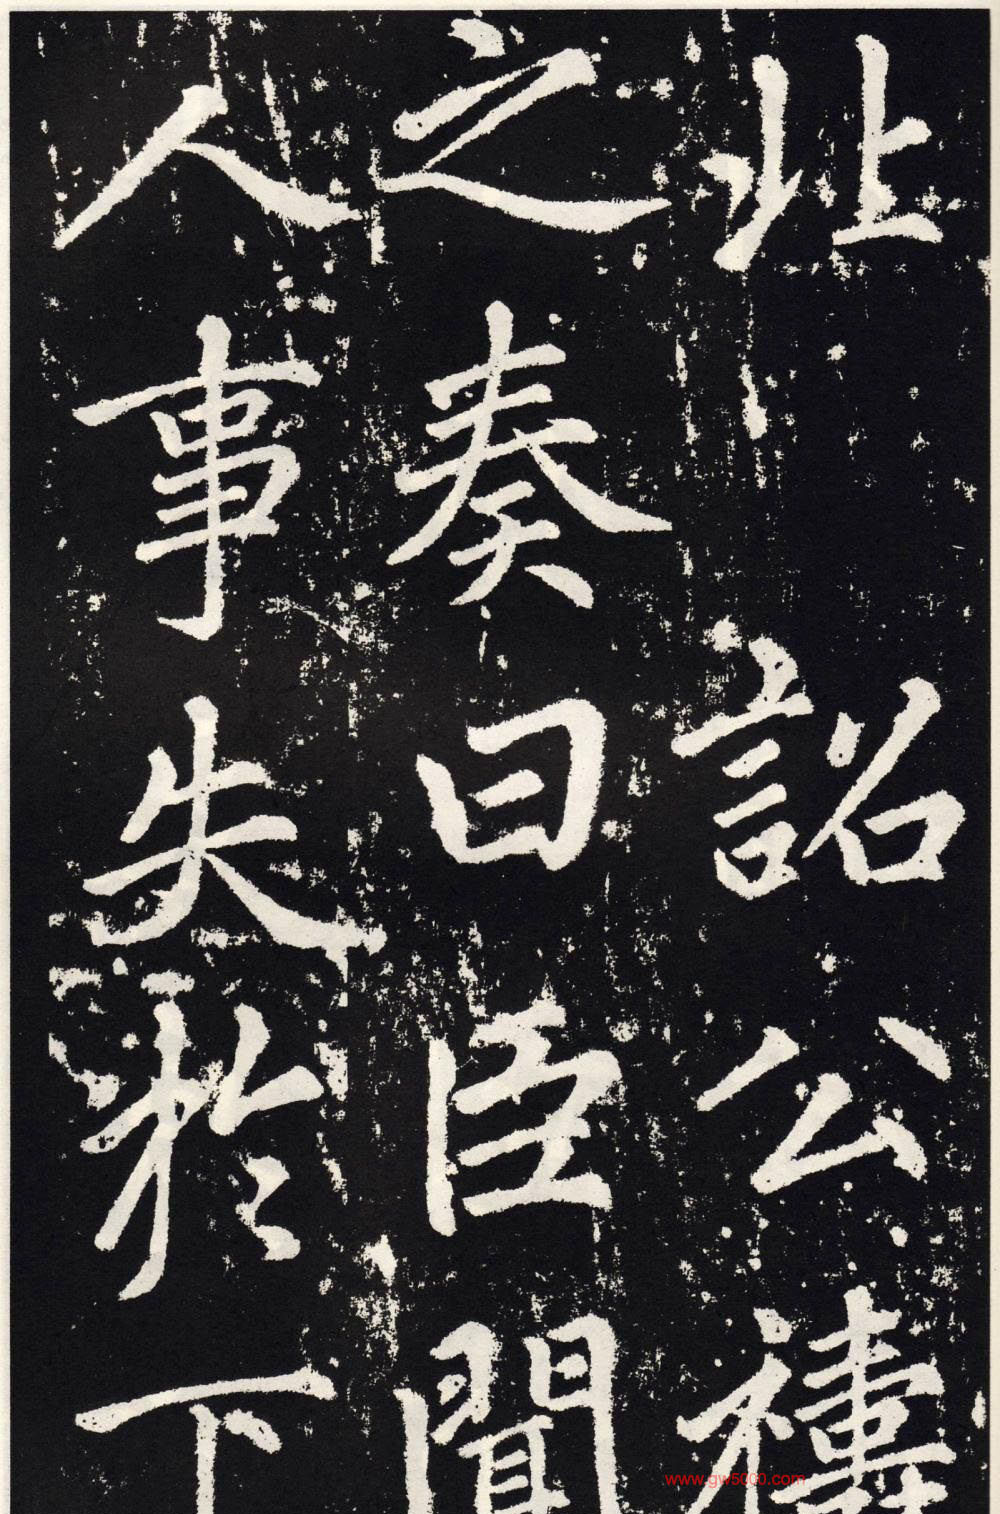 北詔公禱
之奏曰臣聞
人事失於下
www.gw5000.com